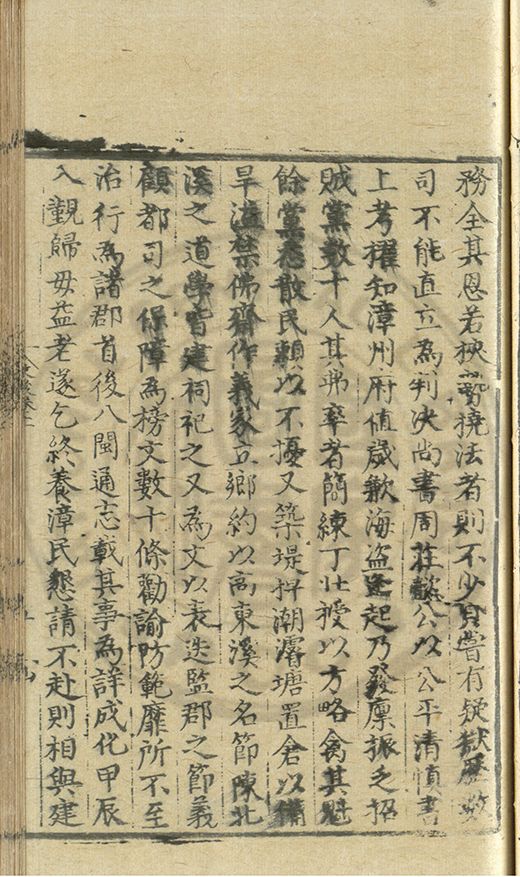 務全其恩若挾勢撓法者則不少貸嘗有疑獄歷數
司不能直立為判决尚書周莊懿公以公平清慎書
上考擢知漳州府值歲歉海盜逢起乃發廪振乏招
賊黨數十人其弗率者簡練丁壮授以方略禽其魁
餘黨悉散民頼以不擾又築堤捍潮濬塘置倉以備
旱澇禁佛齋作義冢立鄉約以高東溪之名節陳北
溪之道學皆建祠祀之又為文以表迭監郡之節義
顧都司之保障為榜文數十條勸諭防範靡所不至
治行為諸郡首後八閩通志載其事為詳成化甲辰
入覲歸毋益老遂乞終養漳民懇請不赴則相與建